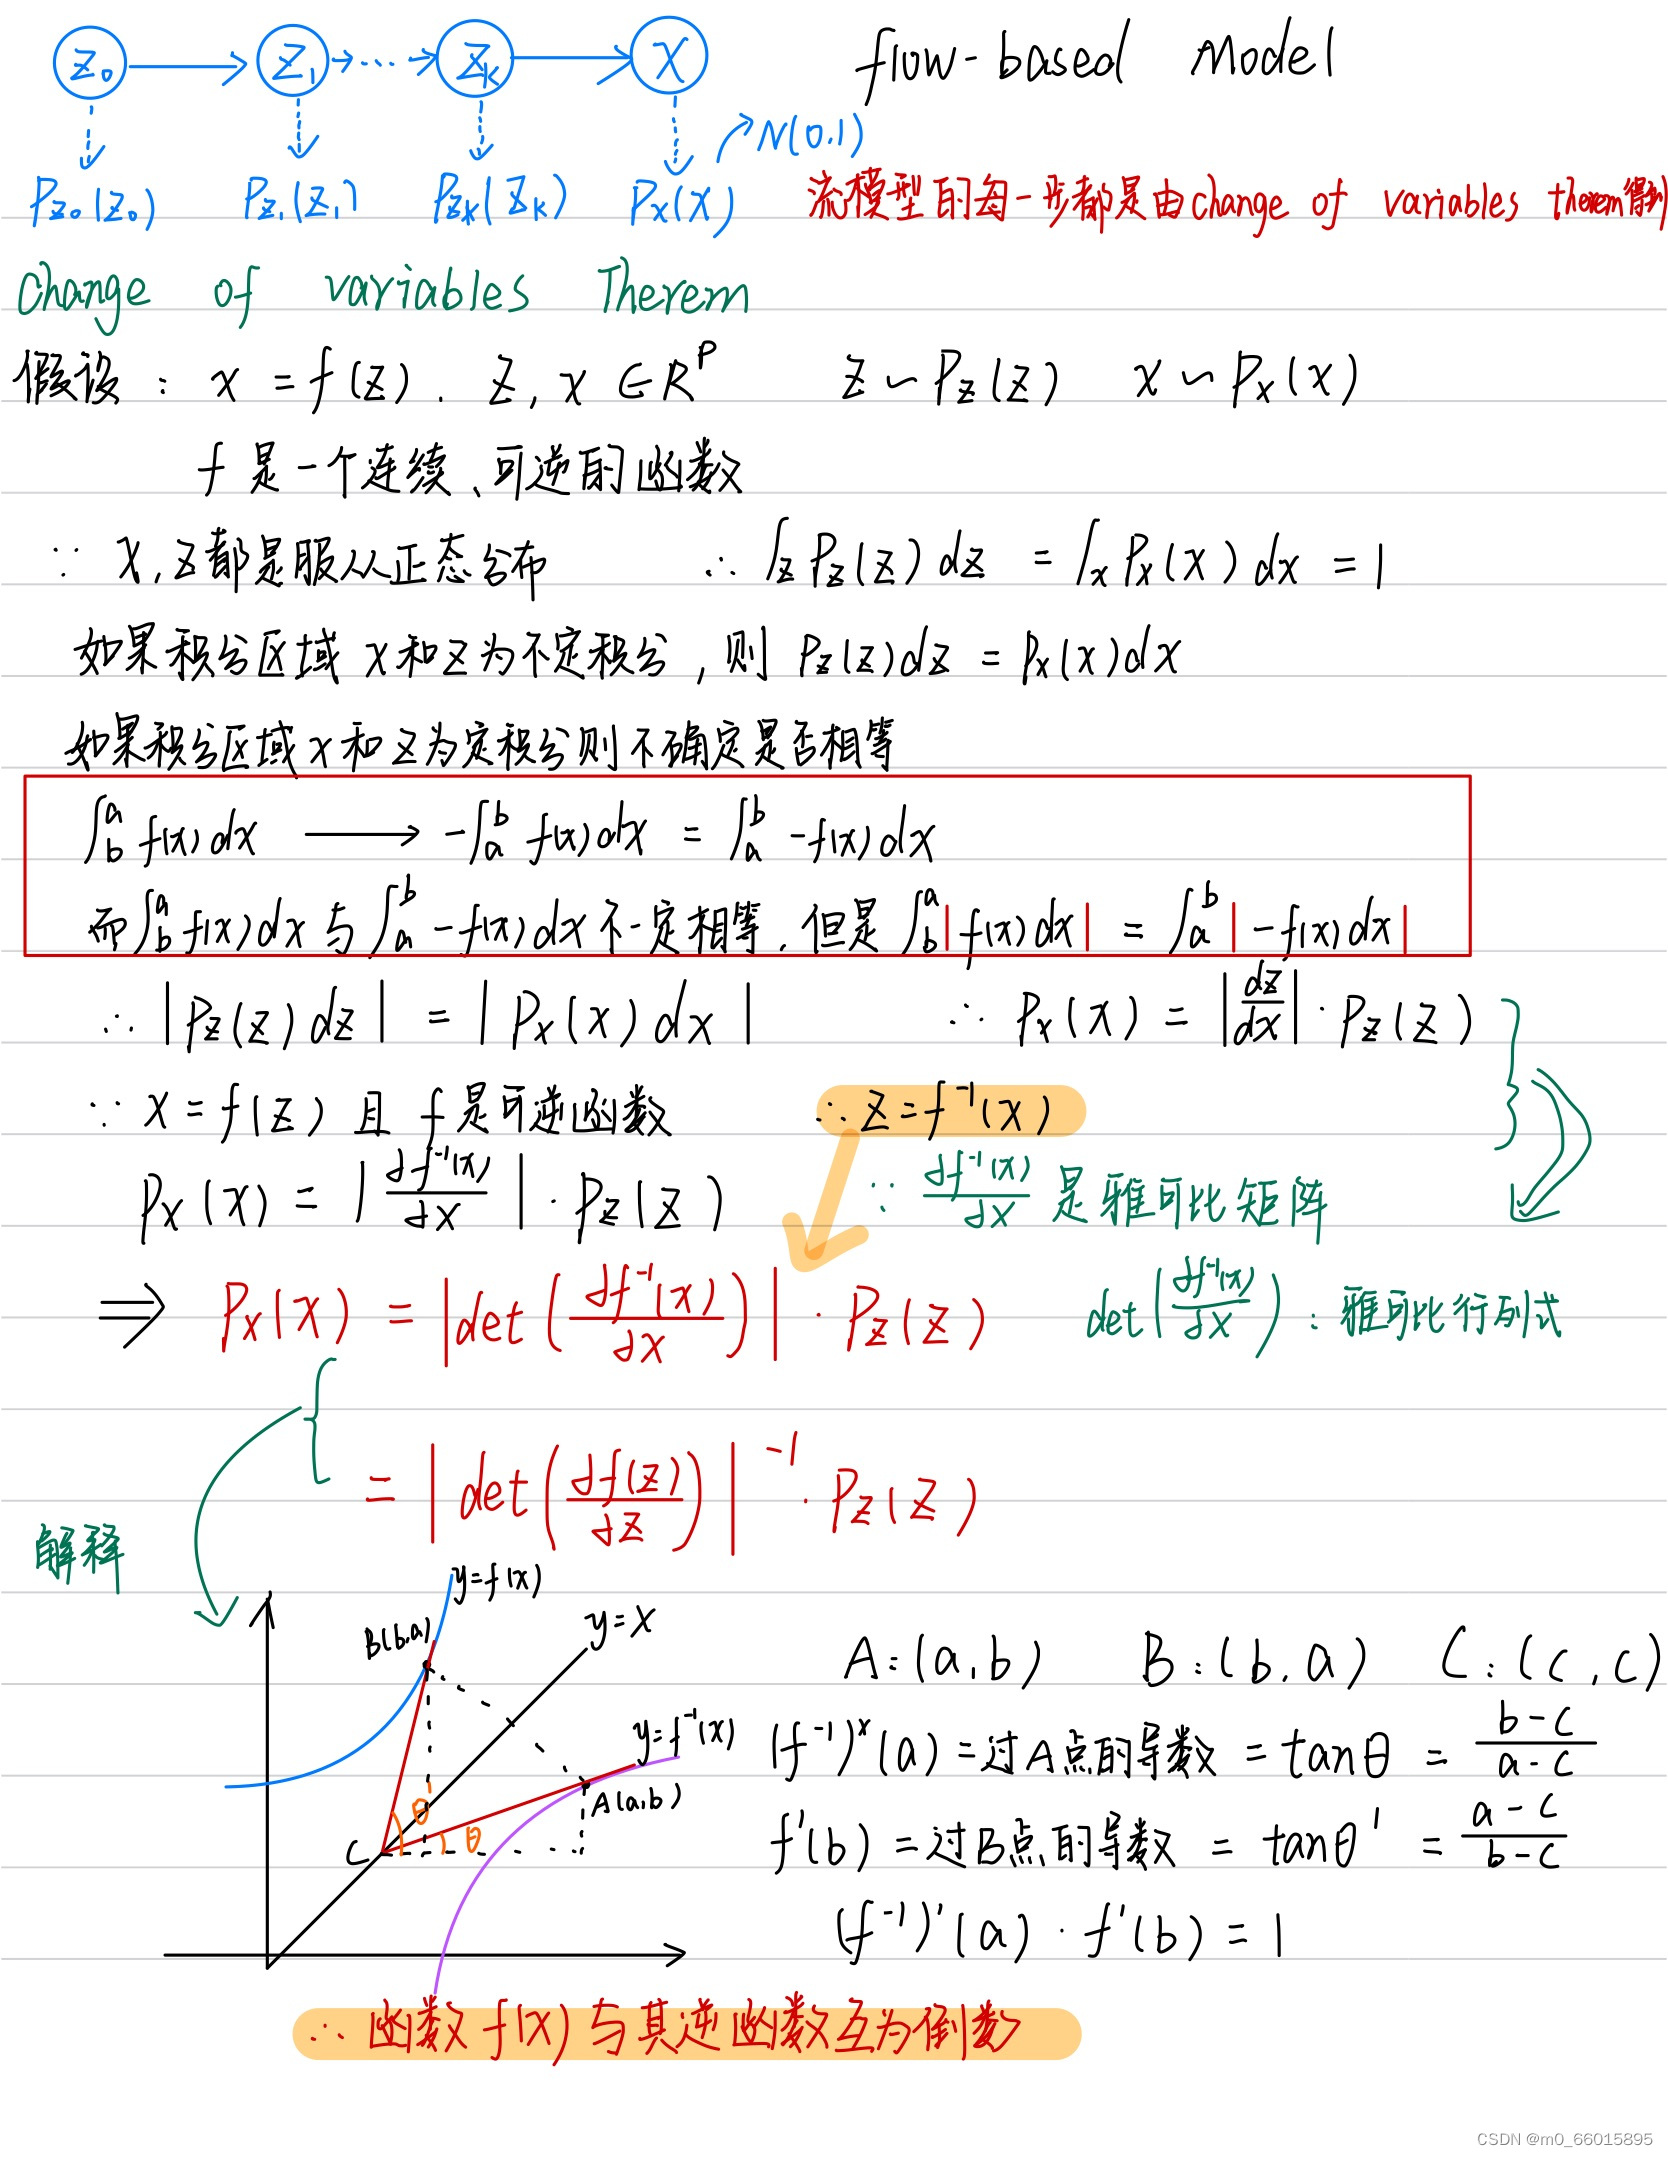 z₀ → z₁ → ... → z_k → x flow-based Model
P_{z₀}(z₀) P_{z₁}(z₁) P_{z_k}(z_k) P_x(x) N(0.1) 流模型的每一步都是由change of variables therem得到
Change of variables Therem
假设: x = f(z). z, x ∈ R^P z ~ P_z(z) x ~ P_x(x)
f 是一个连续、可逆的函数
∵ x, z都是服从正态分布 ∴ ∫_z P_z(z) dz = ∫_x P_x(x) dx = 1
如果积分区域 x和z为不定积分, 则 P_z(z)dz = P_x(x)dx
如果积分区域x和z为定积分则不确定是否相等
∫_b^a f(x)dx ⟶ -∫_a^b f(x)dx = ∫_a^b -f(x)dx
而∫_b^a f(x)dx与∫_a^b -f(x)dx不一定相等, 但是∫_b^a |f(x)dx| = ∫_a^b |-f(x)dx|
∴ |P_z(z)dz| = |P_x(x)dx| ∴ P_x(x) = |dz/dx| · P_z(z)
∵ x = f(z) 且 f是可逆函数 ∴ z = f⁻¹(x)
P_x(x) = |∂f⁻¹(x)/∂x| · P_z(z) ∵ ∂f⁻¹(x)/∂x 是雅可比矩阵
⇒ P_x(x) = |det(∂f⁻¹(x)/∂x)| · P_z(z) det(∂f⁻¹(x)/∂x): 雅可比行列式
= |det(∂f(z)/∂z)|⁻¹ · P_z(z)
解释
y=f(x)
B(b,a) y=x
y=f⁻¹(x)
A(a,b)
θ
θ
C
A:(a,b) B:(b,a) C:(c,c)
(f⁻¹)ˣ(a) = 过A点的导数 = tanθ = (b-c)/(a-c)
f'(b) = 过B点的导数 = tanθ' = (a-c)/(b-c)
(f⁻¹)'(a) · f'(b) = 1
∴ 函数f(x)与其逆函数互为倒数
CSDN @m0_66015895